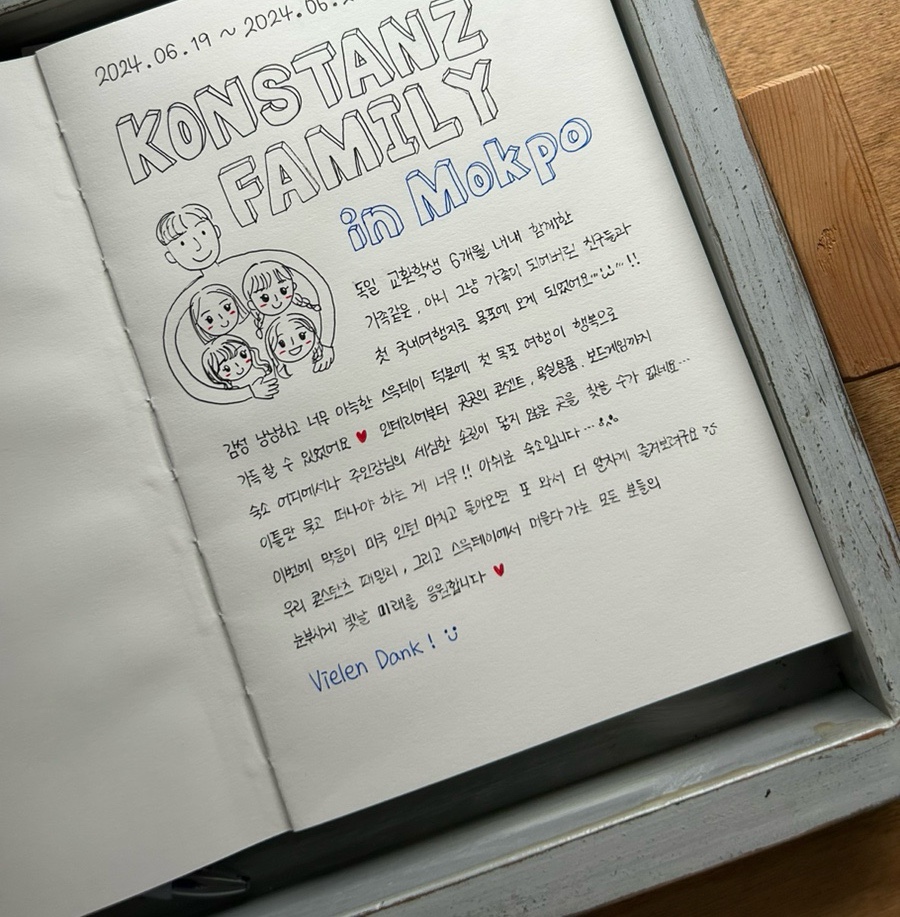 2024.06.19 ~ 2024.06.
KONSTANZ
FAMILY
in Mokpo
독일 교환학생 6개월 내내 함께한
가족같은, 아니 그냥 가족이 되어버린 친구들과
첫 국내여행지로 목포에 오게 되었어요...!!
감성 낭낭하고 너무 아늑한 스윽테이 덕분에 첫 목포 여행이 행복으로
가득 찰 수 있었어요♥ 인테리어부터 곳곳의 콘센트, 욕실용품, 보드게임까지
숙소 어디에서나 주인장님의 세심한 손길이 닿지 않은 곳을 찾을 수가 없네요...
이틀만 묵고 떠나야 하는 게 너무!! 아쉬운 숙소입니다...
이번에 막둥이 미국 인턴 마치고 돌아오면 또 와서 더 알차게 즐겨보려구요
우리 콘스탄츠 패밀리, 그리고 스윽테이에서 머물다 가는 모든 분들의
눈부시게 빛날 미래를 응원합니다 ♥
Vielen Dank!